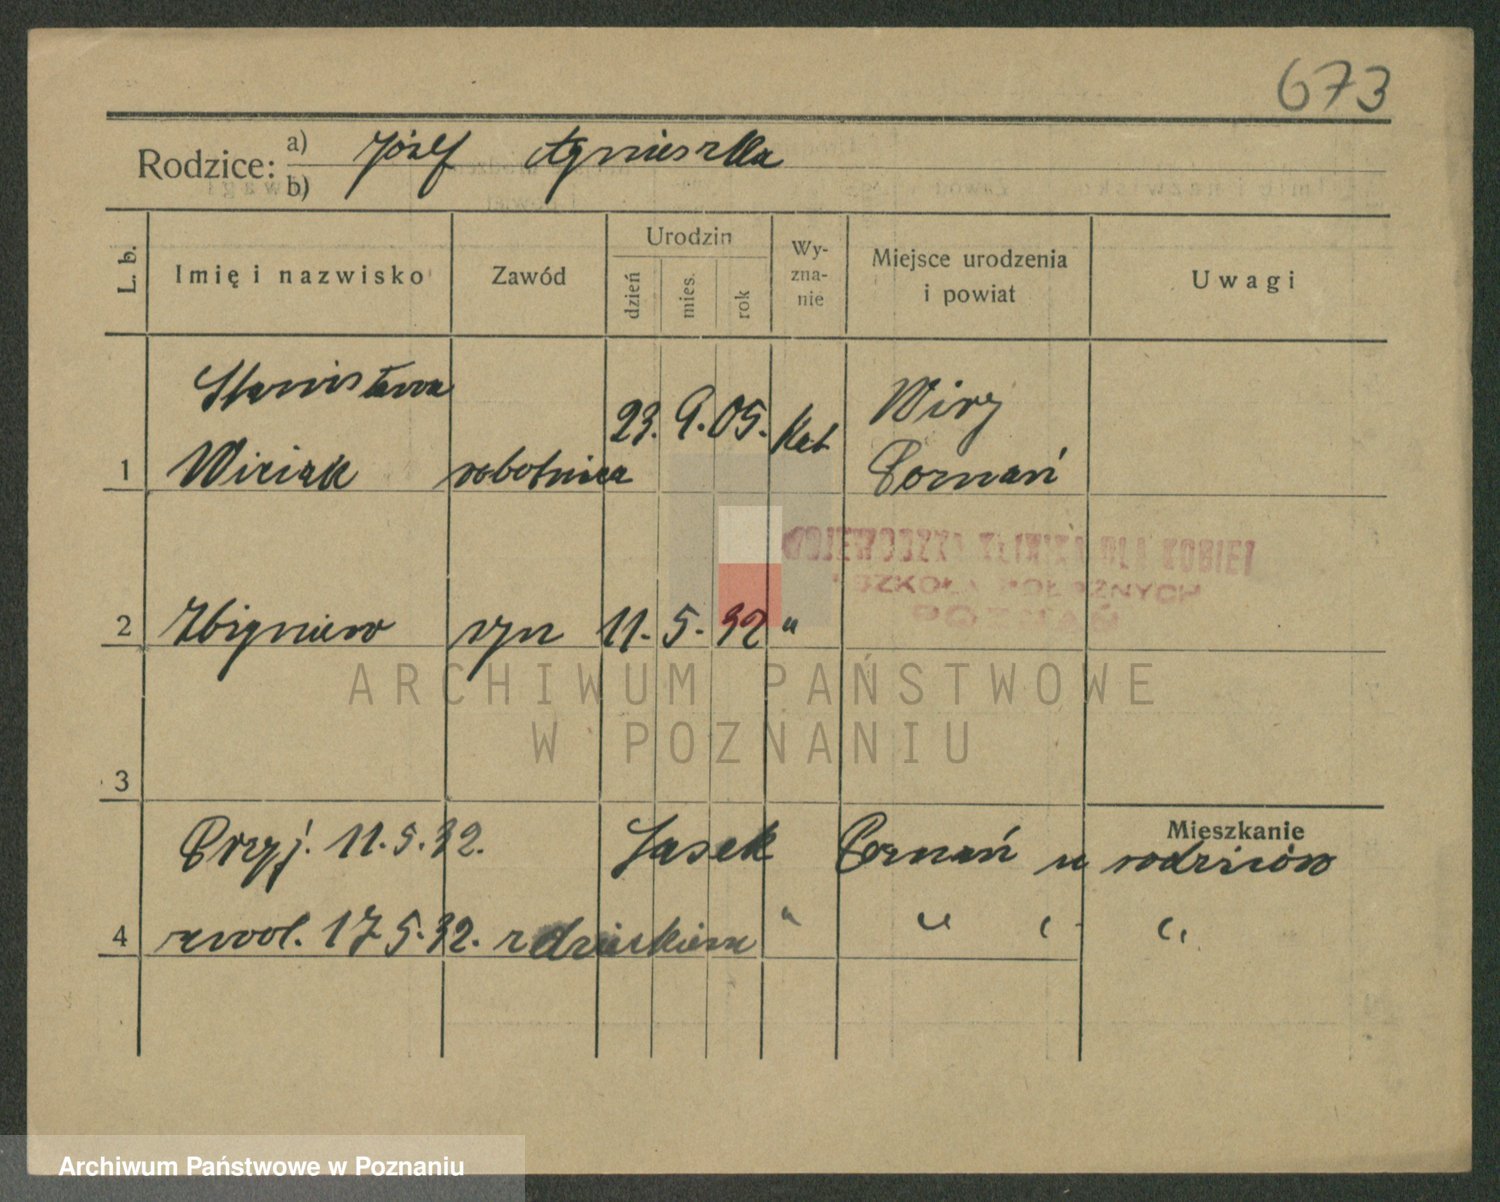 673
Rodzice: a) Józef Agnieszka
b)
L. b.
Imię i nazwisko
Zawód
Urodzin
dzień
mies.
rok
Wy-
zna-
nie
Miejsce urodzenia
i powiat
Uwagi
Stanisława 23. 9. 05. Kat Wiry
1 Wiciak robotnica Poznań
WOJEWÓDZKA KLINIKA DLA KOBIET
I SZKOŁA POŁOŻNYCH
POZNAŃ
2 Zbigniew syn 11. 5. 32 "
ARCHIWUM PAŃSTWOWE
W POZNANIU
3
Mieszkanie
Przyj. 11.5.32. Jasek Poznań u rodziców
4 zwol. 17 5. 32. z dzieckiem " " " "
Archiwum Państwowe w Poznaniu